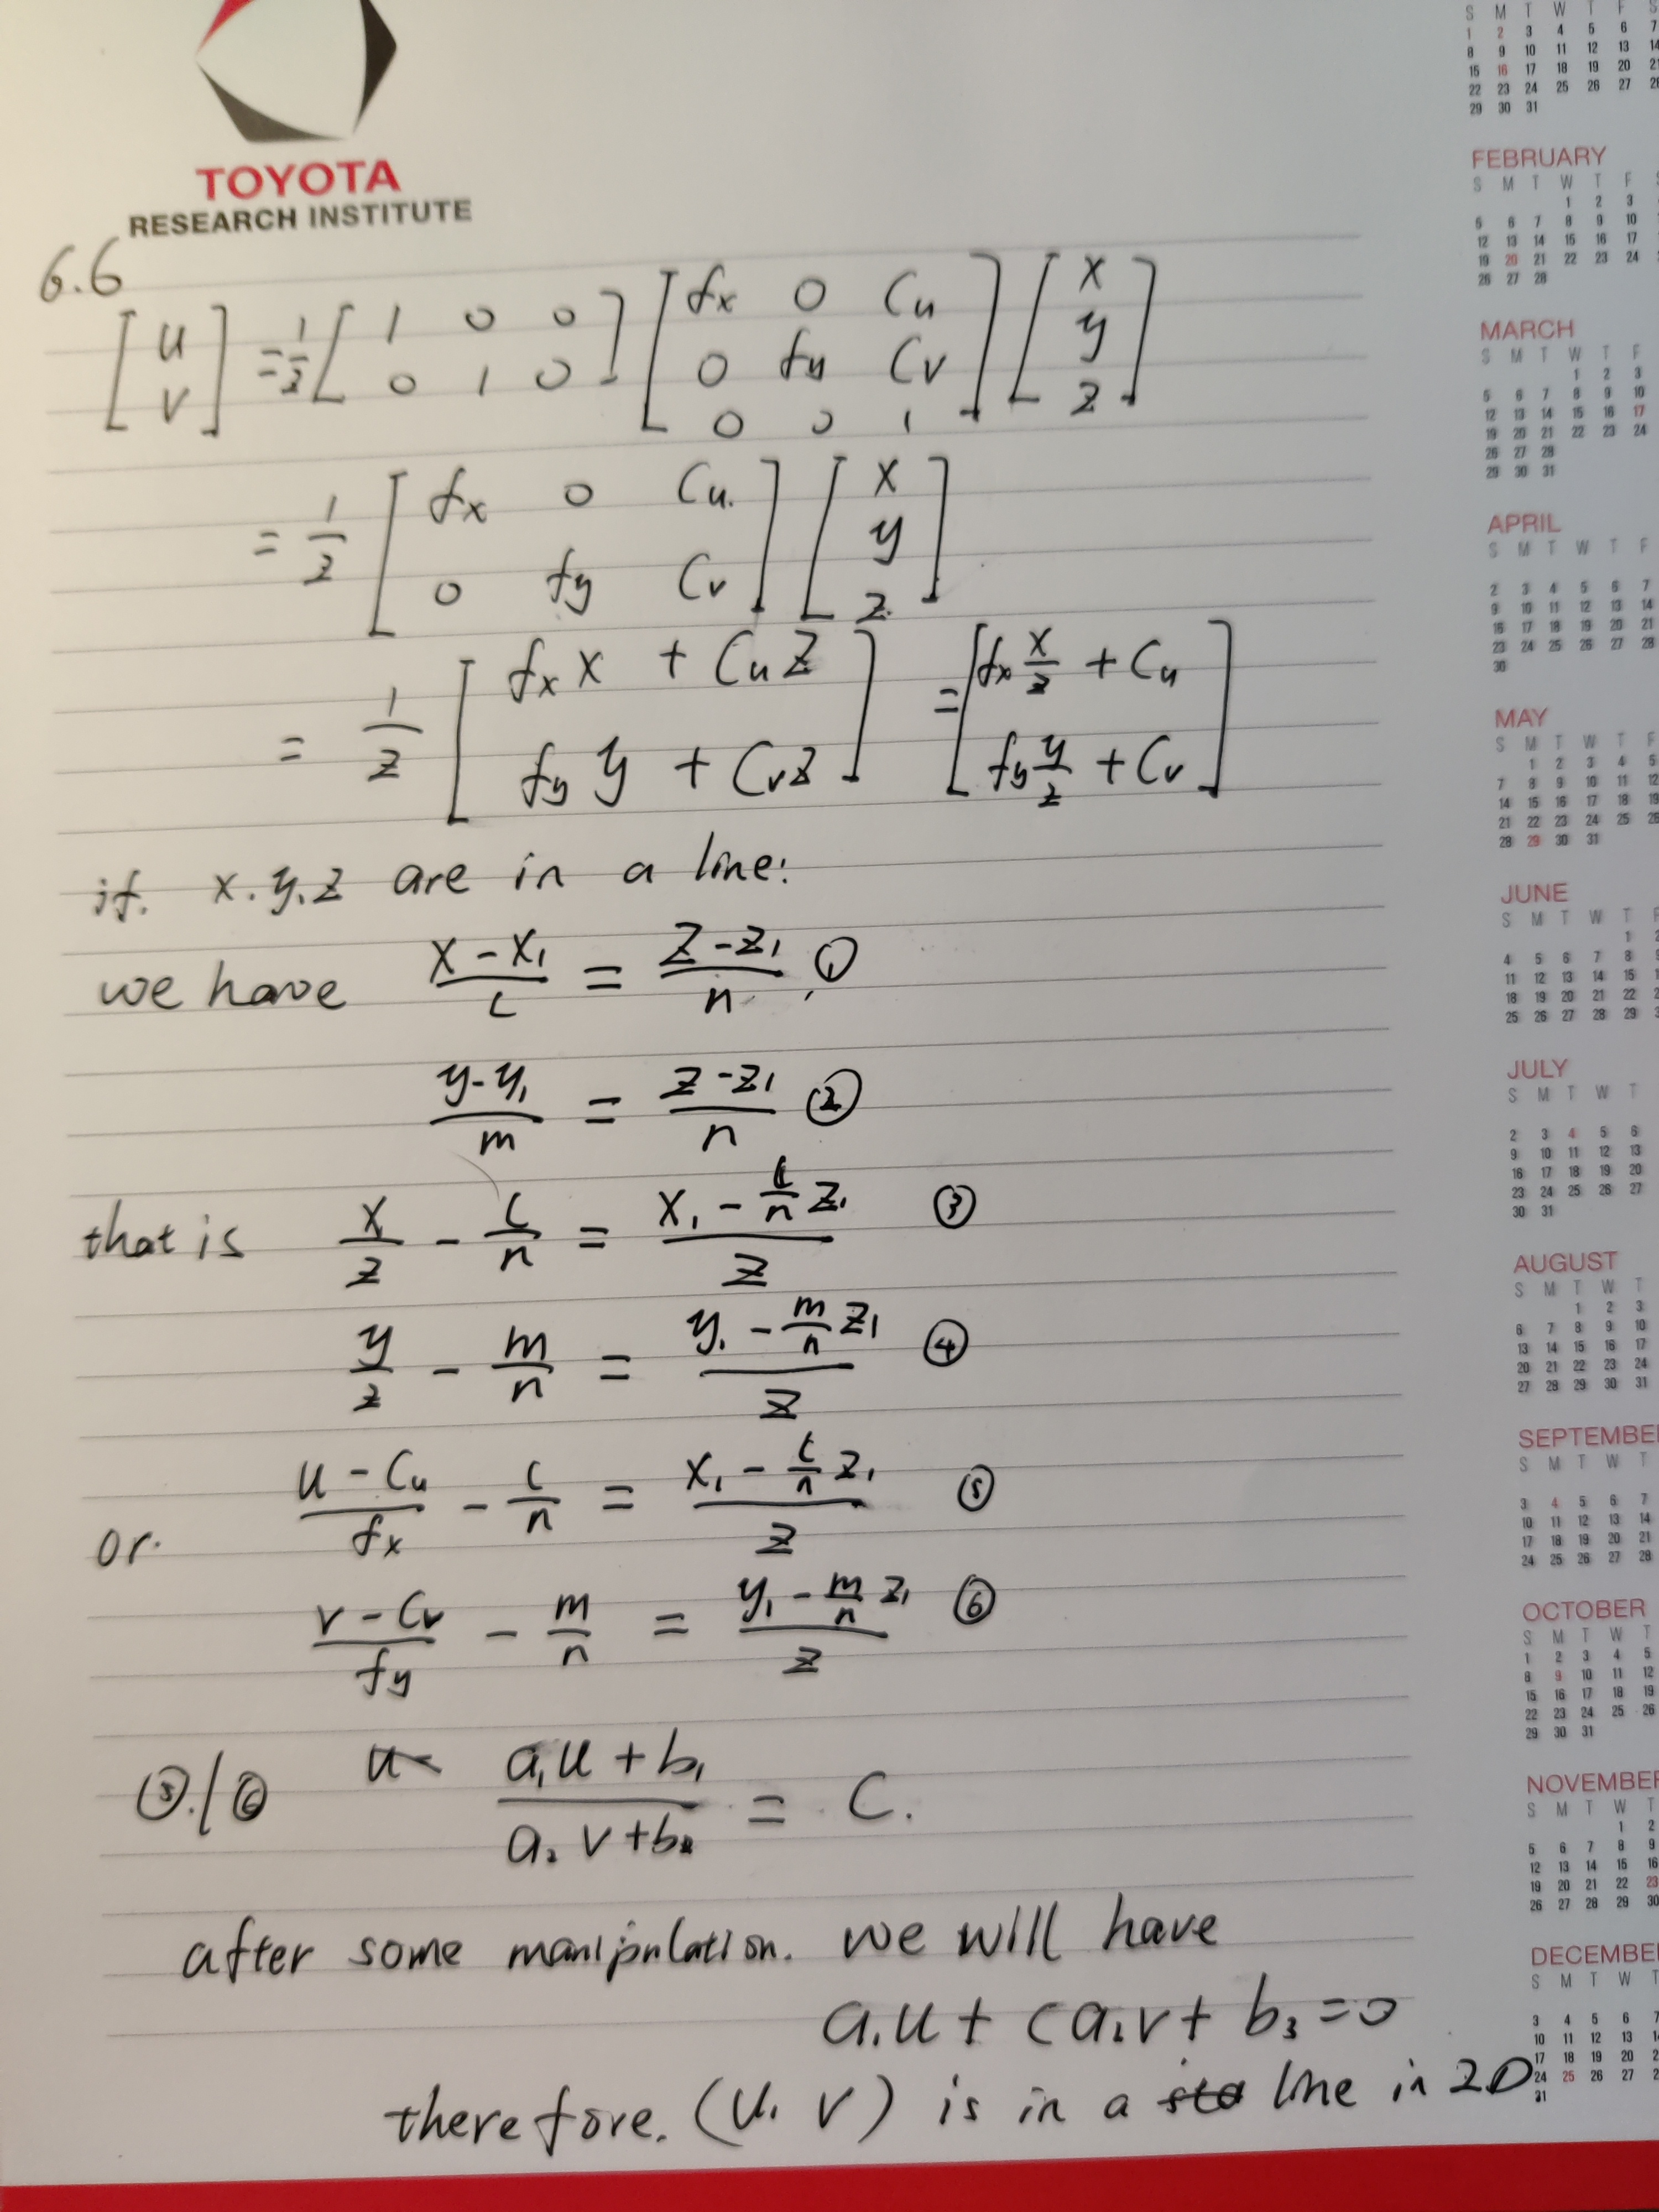 TOYOTA
RESEARCH INSTITUTE
6.6
[u; v] = 1/z [1 0 0; 0 1 0] [fx 0 Cu; 0 fy Cv; 0 0 1] [x; y; z]
= 1/z [fx 0 Cu; 0 fy Cv] [x; y; z]
= 1/z [fx x + Cu z; fy y + Cv z] = [fx x/z + Cu; fy y/z + Cv]
if. x.y.z are in a line:
we have (x - x₁)/l = (z - z₁)/n, ①
(y - y₁)/m = (z - z₁)/n ②
that is x/z - l/n = (x₁ - l/n z₁)/z ③
y/z - m/n = (y₁ - m/n z₁)/z ④
or. (u - Cu)/fx - l/n = (x₁ - l/n z₁)/z ⑤
(v - Cv)/fy - m/n = (y₁ - m/n z₁)/z ⑥
⑤/⑥ (a₁u + b₁)/(a₂v + b₂) = C.
after some manipulation. we will have
a₁u + c a₂v + b₃ = 0
therefore. (u. v) is in a line in 2D
S M T W T F S
1 2 3 4 5 6 7
8 9 10 11 12 13 14
15 16 17 18 19 20 21
22 23 24 25 26 27 28
29 30 31
FEBRUARY
S M T W T F
1 2 3
5 6 7 8 9 10
12 13 14 15 16 17
19 20 21 22 23 24
26 27 28
MARCH
S M T W T F
1 2 3
5 6 7 8 9 10
12 13 14 15 16 17
19 20 21 22 23 24
26 27 28
29 30 31
APRIL
S M T W T F
2 3 4 5 6 7
9 10 11 12 13 14
16 17 18 19 20 21
23 24 25 26 27 28
30
MAY
S M T W T F
1 2 3 4 5
7 8 9 10 11 12
14 15 16 17 18 19
21 22 23 24 25 26
28 29 30 31
JUNE
S M T W T F
1 2
4 5 6 7 8 9
11 12 13 14 15 16
18 19 20 21 22 23
25 26 27 28 29 30
JULY
S M T W T
2 3 4 5 6
9 10 11 12 13
16 17 18 19 20
23 24 25 26 27
30 31
AUGUST
S M T W T
1 2 3
6 7 8 9 10
13 14 15 16 17
20 21 22 23 24
27 28 29 30 31
SEPTEMBE
S M T W T
3 4 5 6 7
10 11 12 13 14
17 18 19 20 21
24 25 26 27 28
OCTOBER
S M T W T
1 2 3 4 5
8 9 10 11 12
15 16 17 18 19
22 23 24 25 26
29 30 31
NOVEMBER
S M T W T
1 2
5 6 7 8 9
12 13 14 15 16
19 20 21 22 23
26 27 28 29 30
DECEMBE
S M T W T
3 4 5 6 7
10 11 12 13
17 18 19 20 21
24 25 26 27 28
31